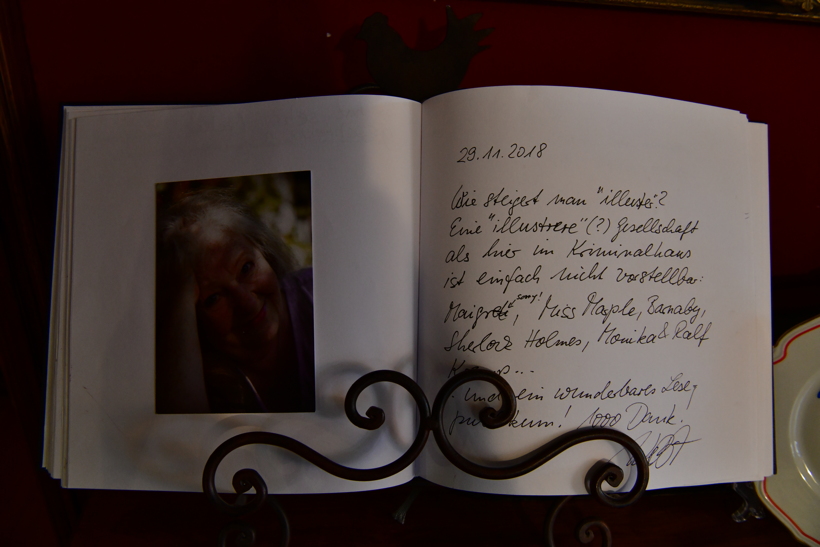 29.11.2018
Wie steigert man "illuster"?
Eine "illustrere" (?) Gesellschaft
als hier im Kriminalhaus
ist einfach nicht vorstellbar:
Maigret, sorry! Miss Marple, Barnaby,
Sherlock Holmes, Monika & Ralf
und ein wunderbares Lese-
publikum! 1000 Dank.